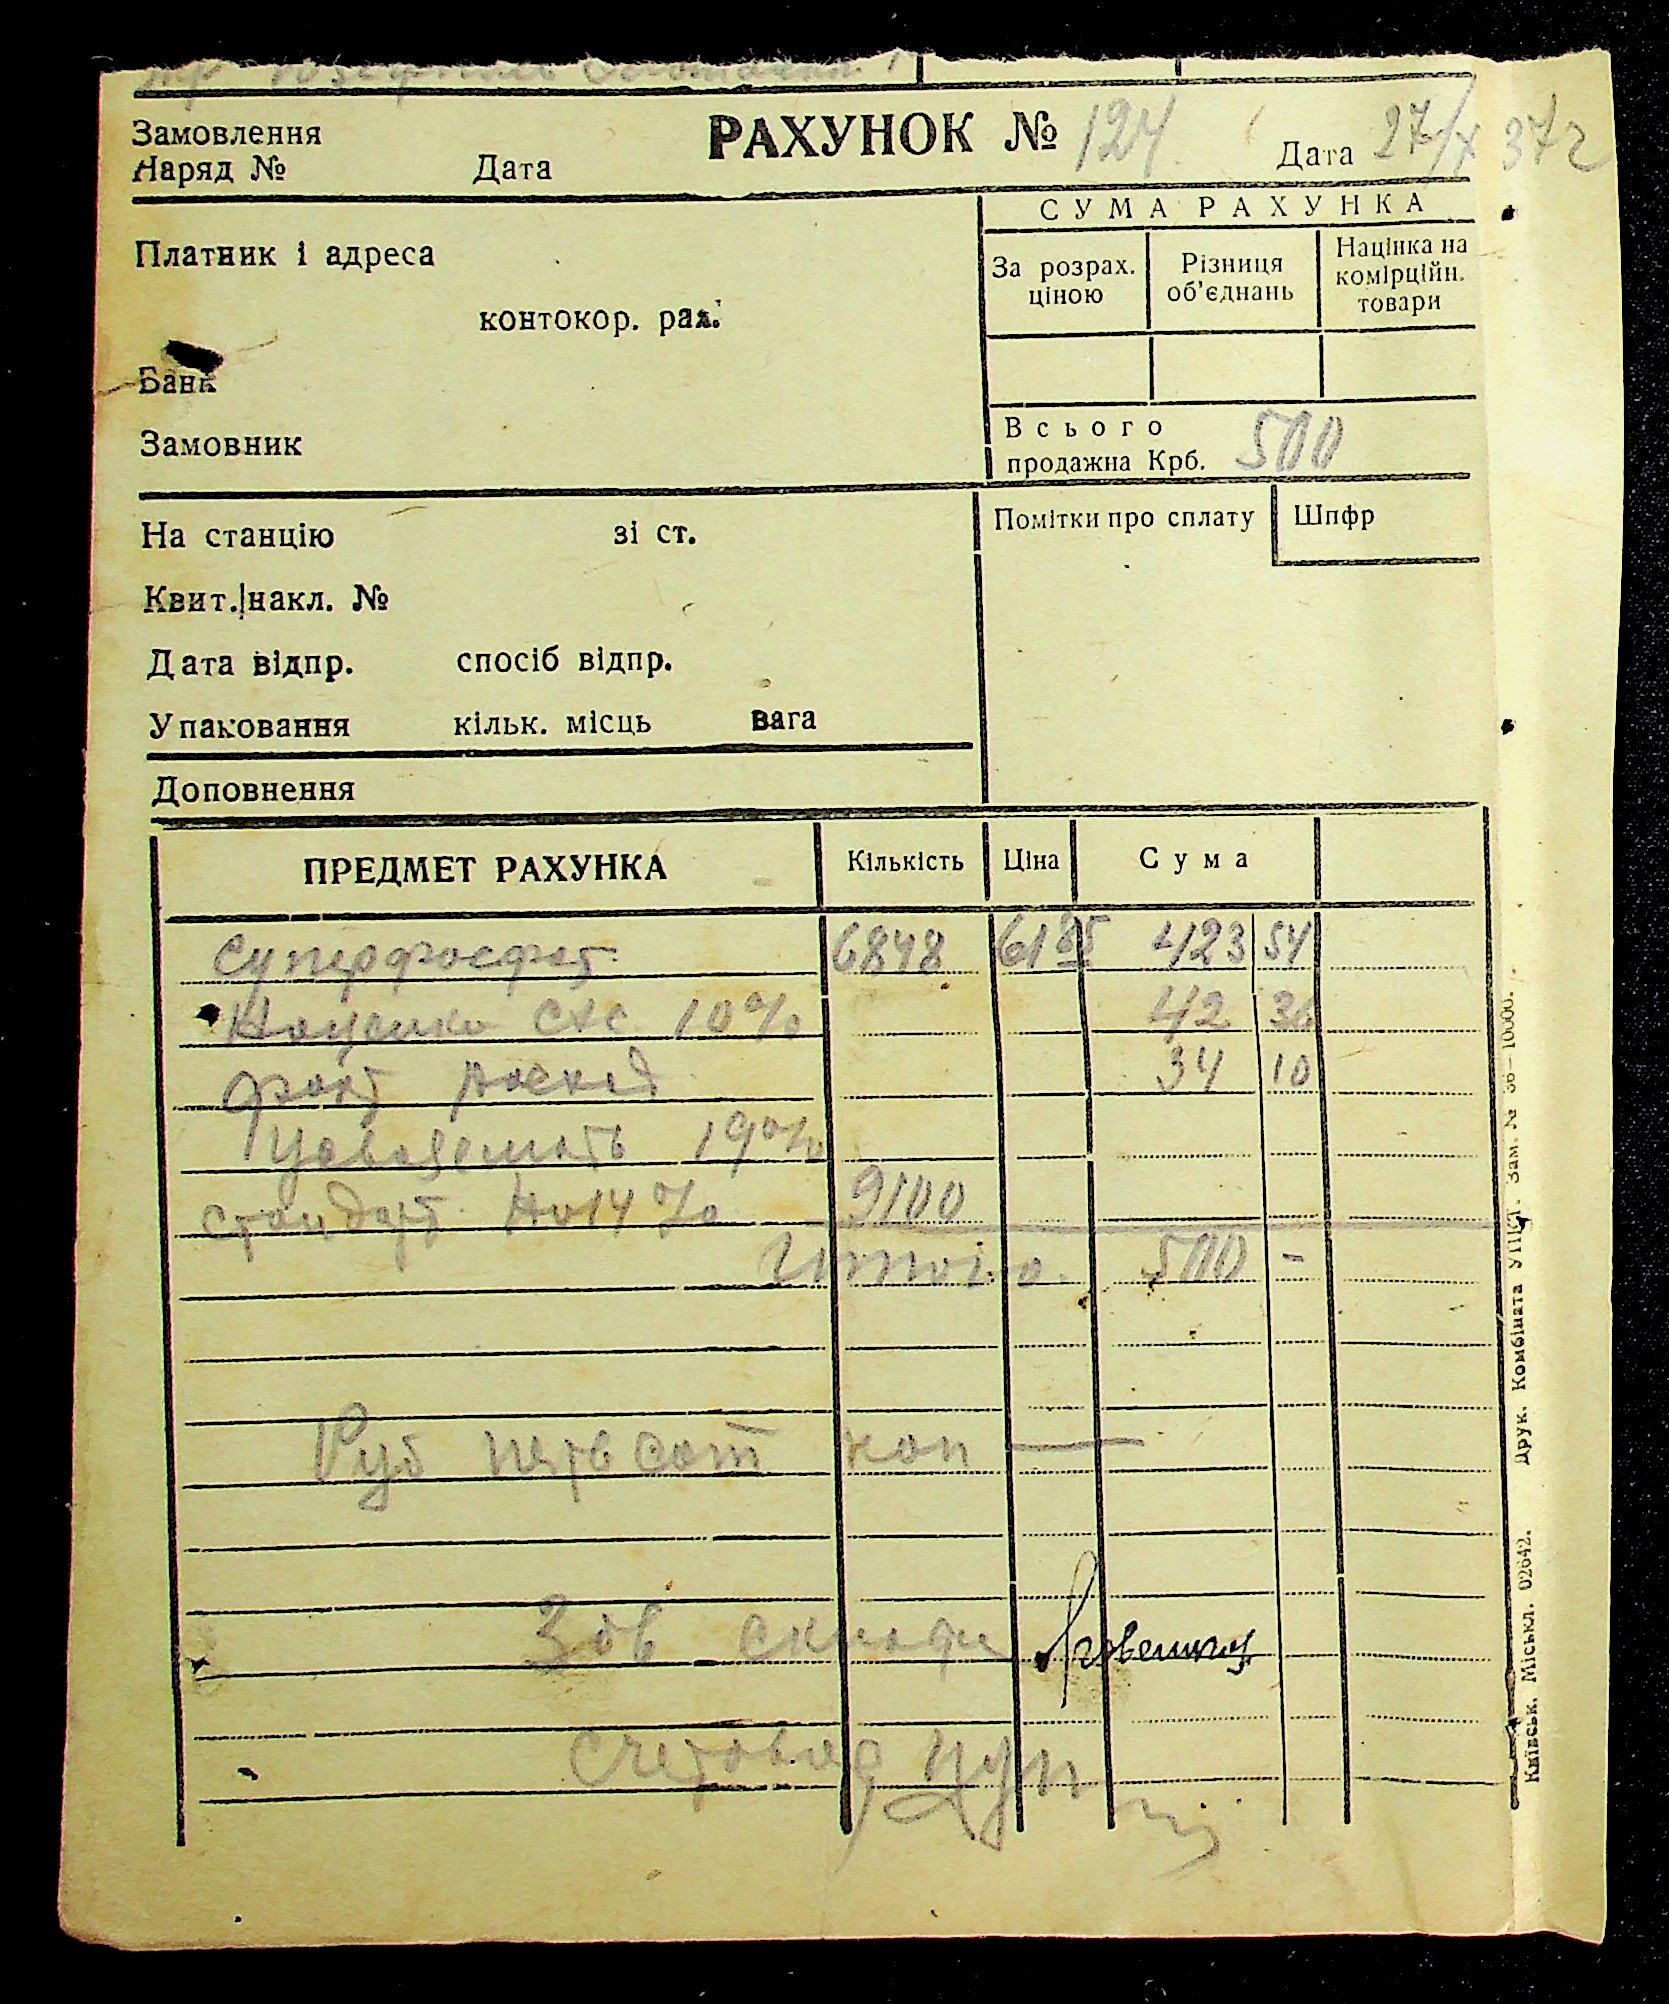 РАХУНОК № 124 Дата 27/X 37 г
Замовлення
Наряд № Дата
СУМА РАХУНКА
Платник і адреса
За розрах. ціною
Різниця об'єднань
Націнка на комірційн. товари
контокор. рах.
Банк
Замовник
Всього
продажна Крб. 500
На станцію зі ст.
Помітки про сплату
Шпфр
Квит. накл. №
Дата відпр. спосіб відпр.
Упаковання кільк. місць вага
Доповнення
ПРЕДМЕТ РАХУНКА Кількість Ціна Сума
Суперфосфат 6848 61 85 423 54
Наценка 10% 42 36
34 10
19%
стандарт 14% 9100
Итого 500 -
Руб пятьсот коп —
Зав склада
Счетовод
Київськ. Міськл. 02642. Друк. Комбіната УПКТ. Зам. № 36—10000.